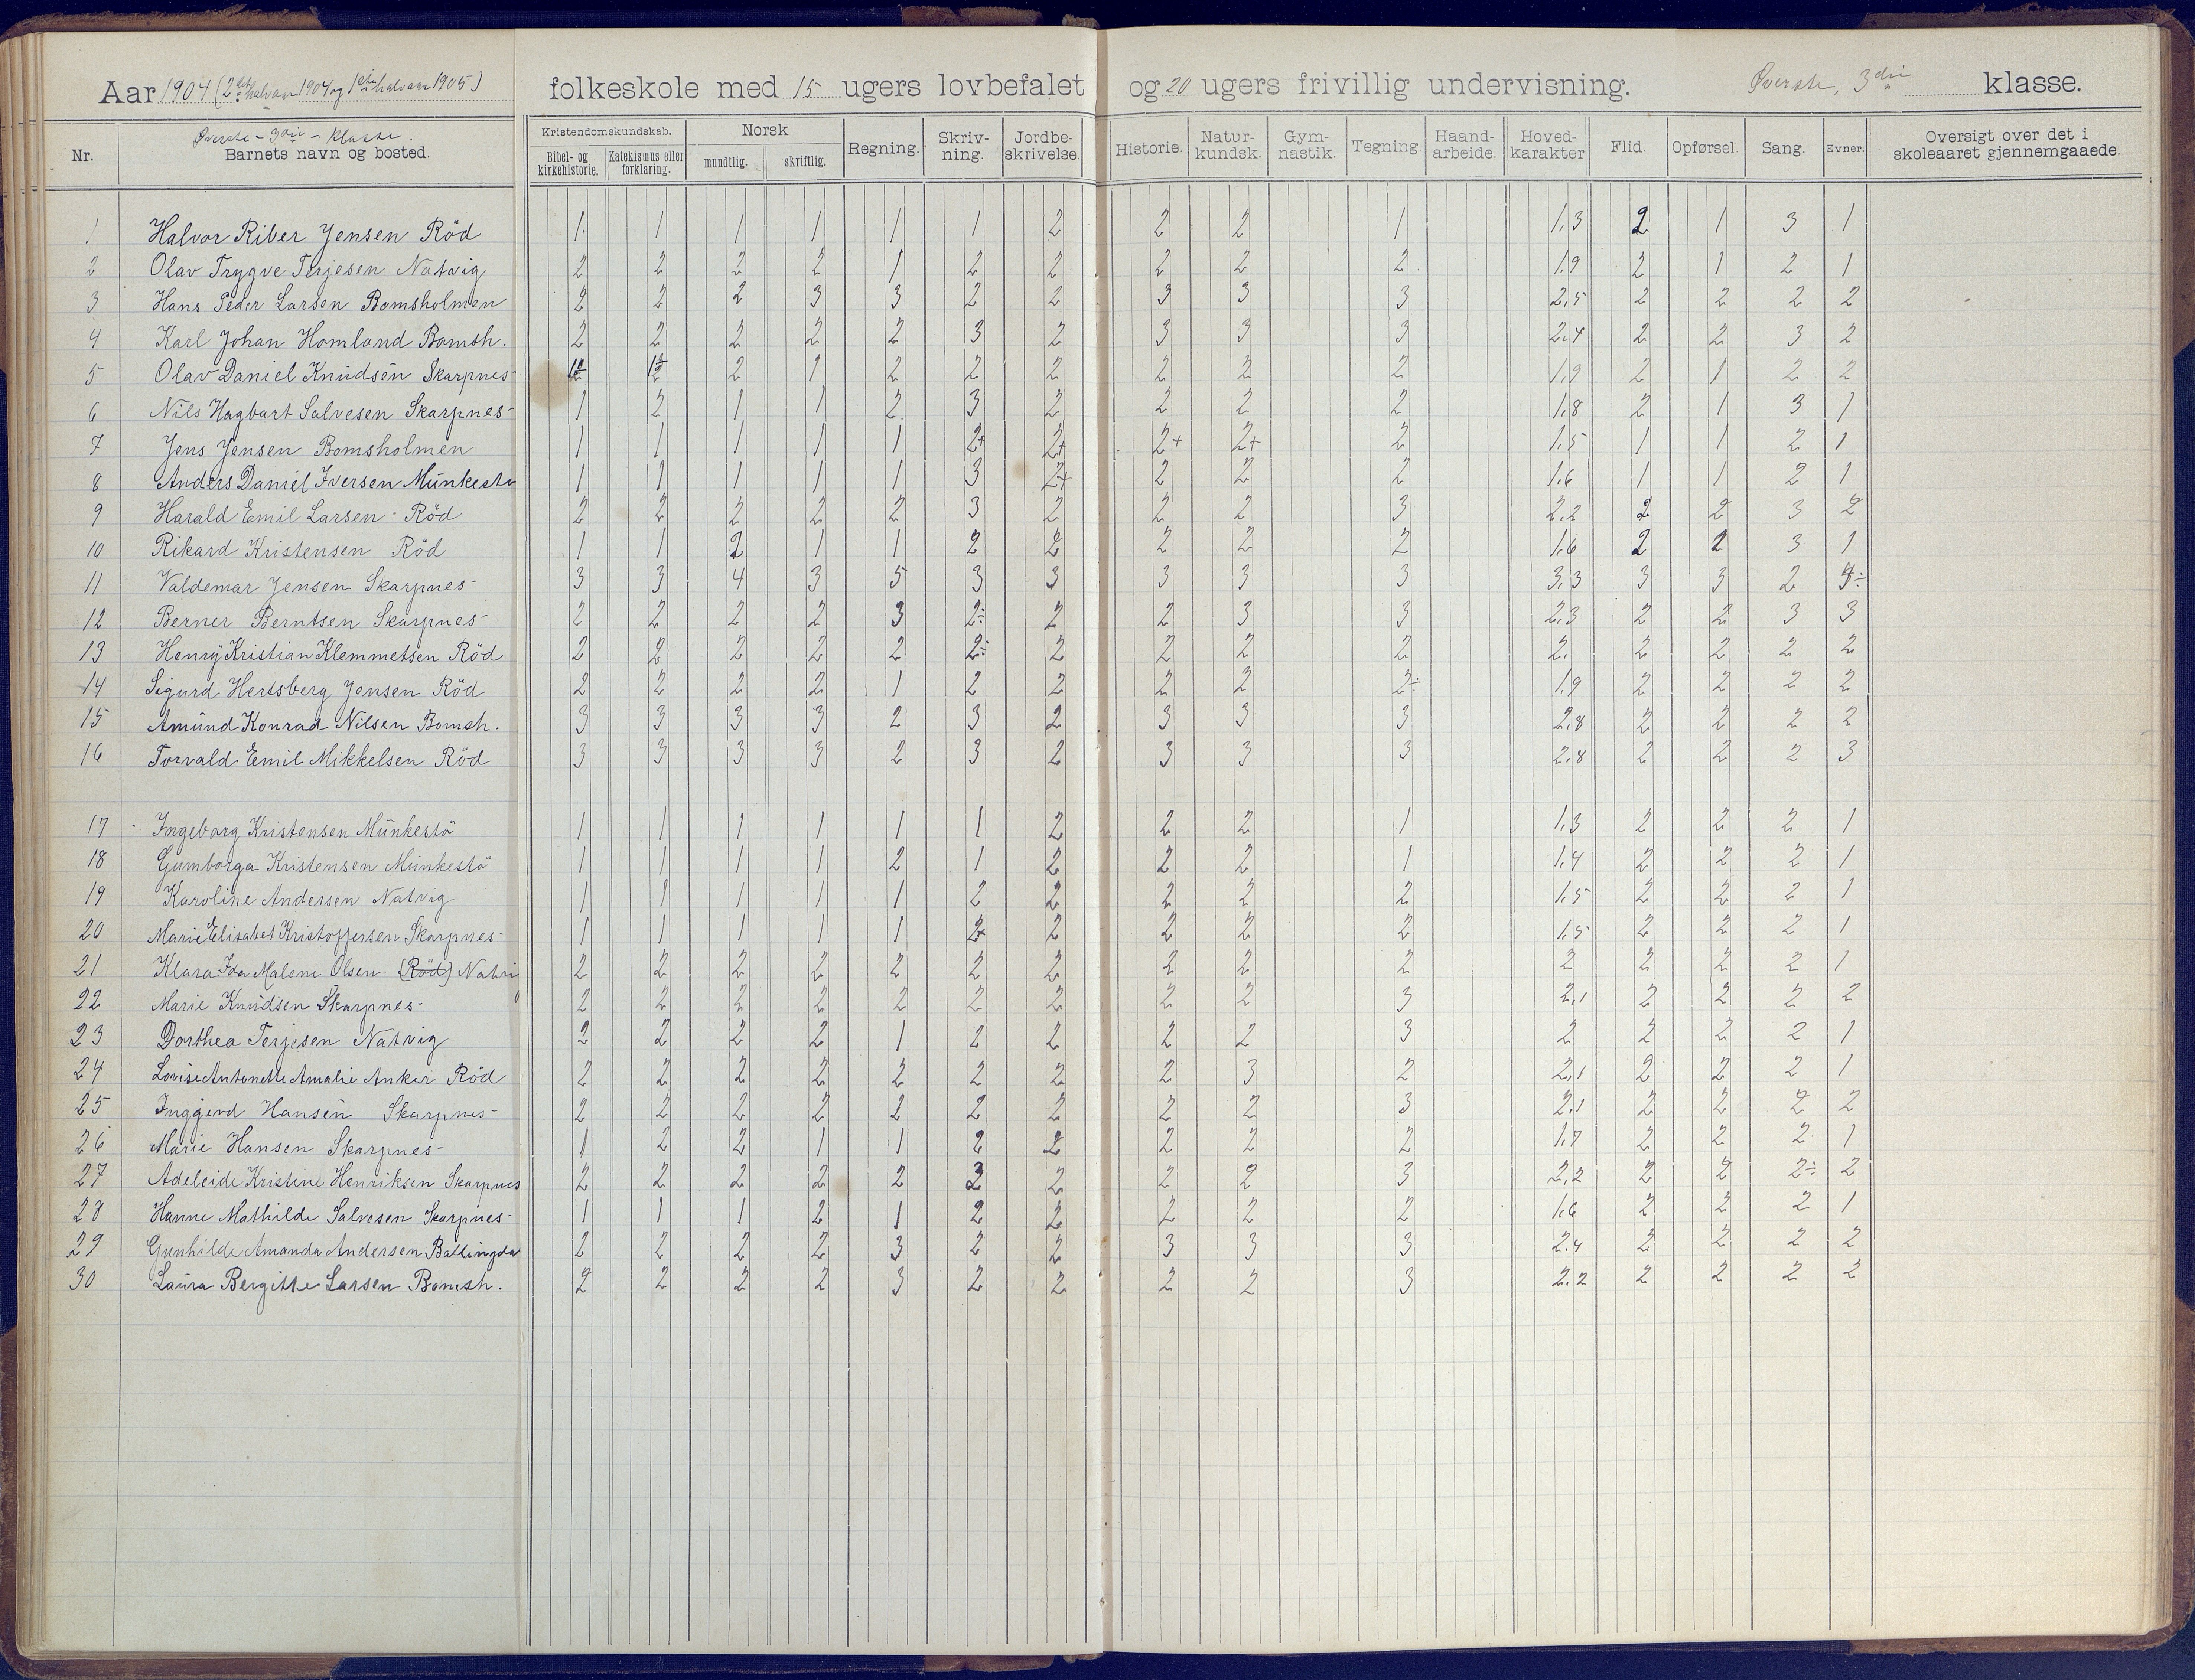 Aar 1904 (2det halvaar 1904 og 1ste halvaar 1905) folkeskole med 15 ugers lovbefalet og 20 ugers frivillig undervisning. Øverste, 3die klasse.
Nr. Øverste - 3die - Klasse. Barnets navn og bosted. Kristendomskundskab. Bibel- og kirkehistorie. Katekismus eller forklaring. Norsk mundtlig. skriftlig. Regning. Skriv-ning. Jordbe-skrivelse. Historie. Natur-kundsk. Gym-nastik. Tegning. Haand-arbeide. Hoved-karakter Flid. Opførsel. Sang. Evner. Oversigt over det i skoleaaret gjennemgaaede.
1 Halvor Riber Jensen Röd 1. 1 1 1 1 1 2 2 2 1 1,3 2 1 3 1
2 Olav Trygve Terjesen Natvig 2 2 2 2 1 2 2 2 2 2 1,9 2 1 2 1
3 Hans Peder Larsen Bomsholmen 2 2 2 3 3 2 2 3 3 3 2,5 2 2 2 2
4 Karl Johan Homland Bomsh. 2 2 2 2 2 3 2 3 3 3 2,4 2 2 3 2
5 Olav Daniel Knudsen Skarpnes 2 1 2 2 2 2 2 2 1,9 2 1 2 2
6 Nils Hagbart Salvesen Skarpnes 1 2 1 1 2 3 2 2 2 2 1,8 2 1 3 1
7 Jens Jensen Bomsholmen 1 1 1 1 1 2+ 2+ 2+ 2+ 2 1,5 1 1 2 1
8 Anders Daniel Iversen Munkestø 1 1 1 1 1 3 2+ 2 2 2 1,6 1 1 2 1
9 Harald Emil Larsen - Röd 2 2 2 2 2 3 2 2 2 3 2,2 2 2 3 2
10 Rikard Kristensen Röd 1 1 2 1 1 2 2 2 2 2 1,6 2 2 3 1
11 Valdemar Jensen Skarpnes 3 3 4 3 5 3 3 3 3 3 3,3 3 3 2
12 Berner Berntsen Skarpnes 2 2 2 2 3 2÷ 2 2 3 3 2,3 2 2 3 3
13 Henry Kristian Klemmetsen Röd 2 2 2 2 2 2÷ 2 2 2 2 2. 2 2 2 2
14 Sigurd Hertsberg Jensen Röd 2 2 2 2 1 2 2 2 2 2÷ 1,9 2 2 2 2
15 Amund Konrad Nilsen Bomsh. 3 3 3 3 2 3 2 3 3 3 2,8 2 2 2 2
16 Torvald Emil Mikkelsen Röd 3 3 3 3 2 3 2 3 3 3 2,8 2 2 2 3
17 Ingeborg Kristensen Munkestö 1 1 1 1 1 1 2 2 2 1 1,3 2 2 2 1
18 Gumborga Kristensen Munkestö 1 1 1 1 2 1 2 2 2 1 1,4 2 2 2 1
19 Karoline Andersen Natvig 1 1 1 1 1 2 2 2 2 2 1,5 2 2 2 1
20 Marie Elisabet Kristoffersen Skarpnes 1 1 1 1 1 2+ 2 2 2 2 1,5 2 2 2 1
21 Klara Ida Malene Olsen (Röd) Natvi 2 2 2 2 2 2 2 2 2 2 2 2 2 2 1
22 Marie Knudsen Skarpnes 2 2 2 2 2 2 2 2 2 3 2,1 2 2 2 2
23 Dorthea Terjesen Natvig 2 2 2 2 1 2 2 2 2 3 2 2 2 2 1
24 Lovise Antonette Amalie Anker Röd 2 2 2 2 2 2 2 2 3 2 2,1 2 2 2 1
25 Inggjerd Hansen Skarpnes 2 2 2 2 2 2 2 2 2 3 2,1 2 2 2 2
26 Marie Hansen Skarpnes 1 2 2 1 1 2 2 2 2 2 1,7 2 2 2 1
27 Adeleide Kristine Henriksen Skarpnes 2 2 2 2 2 3 2 2 2 3 2,2 2 2 2÷ 2
28 Hanne Mathilde Salvesen Skarpnes 1 1 1 2 1 2 2 2 2 2 1,6 2 2 2 1
29 Gunhilde Amanda Andersen Ballingdal 2 2 2 2 3 2 2 3 3 3 2,4 2 2 2 2
30 Laura Bergitte Larsen Bomsh. 2 2 2 2 3 2 2 2 2 3 2,2 2 2 2 2